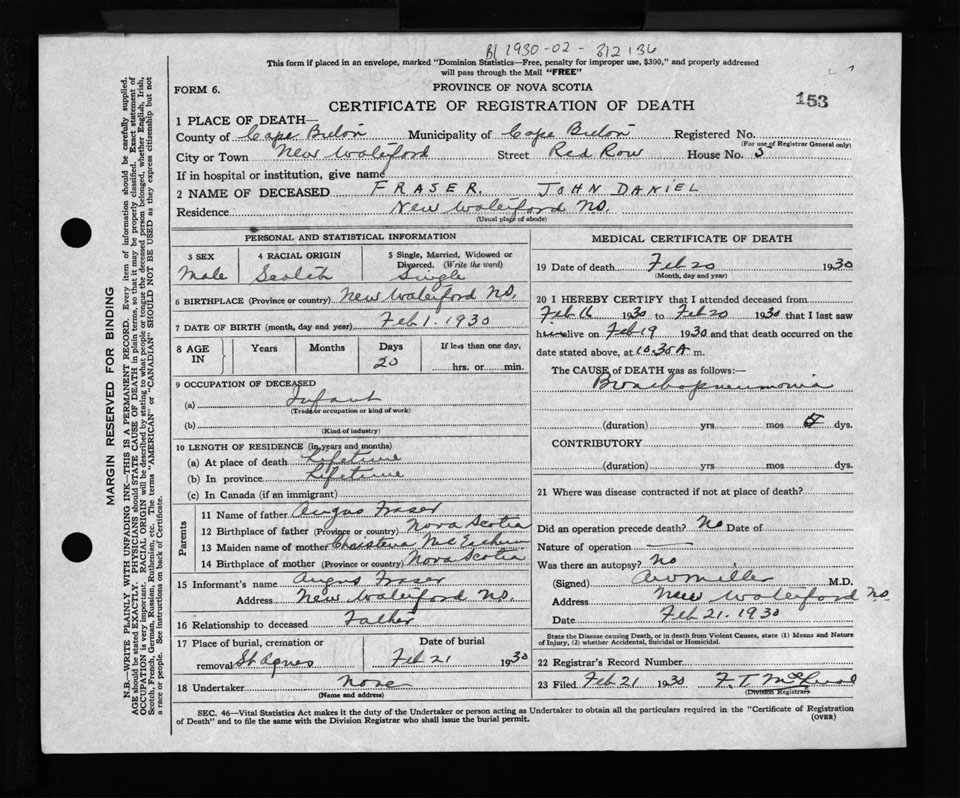 B1 1930-02-312136
This form if placed in an envelope, marked "Dominion Statistics—Free, penalty for improper use, $300," and properly addressed
will pass through the Mail "FREE"
FORM 6.
PROVINCE OF NOVA SCOTIA
153
CERTIFICATE OF REGISTRATION OF DEATH
1 PLACE OF DEATH—
County of Cape Breton Municipality of Cape Breton Registered No.
(For use of Registrar General only)
City or Town New Waterford Street Red Row House No. 5
If in hospital or institution, give name
2 NAME OF DECEASED FRASER, JOHN DANIEL
Residence New Waterford N.S.
(Usual place of abode)
PERSONAL AND STATISTICAL INFORMATION
3 SEX 4 RACIAL ORIGIN 5 Single, Married, Widowed or
Divorced. (Write the word)
Male Scotch Single
6 BIRTHPLACE (Province or country) New Waterford N.S.
7 DATE OF BIRTH (month, day and year) Feb 1. 1930
8 AGE IN Years Months Days If less than one day,
20 hrs. or min.
9 OCCUPATION OF DECEASED
(a) Infant
(Trade or occupation or kind of work)
(b)
(Kind of industry)
10 LENGTH OF RESIDENCE (in years and months)
(a) At place of death Lifetime
(b) In province Lifetime
(c) In Canada (if an immigrant)
Parents
11 Name of father Angus Fraser
12 Birthplace of father (Province or country) Nova Scotia
13 Maiden name of mother Christena McEachern
14 Birthplace of mother (Province or country) Nova Scotia
15 Informant's name Angus Fraser
Address New Waterford N.S.
16 Relationship to deceased Father
17 Place of burial, cremation or Date of burial
removal St Agnes Feb 21 1930
18 Undertaker None
(Name and address)
MEDICAL CERTIFICATE OF DEATH
19 Date of death Feb 20 1930
(Month, day and year)
20 I HEREBY CERTIFY that I attended deceased from
Feb 16 1930 to Feb 20 1930 that I last saw
him alive on Feb 19 1930 and that death occurred on the
date stated above, at 10.30 A m.
The CAUSE of DEATH was as follows:—
Bronchopneumonia
(duration) yrs mos 5 dys.
CONTRIBUTORY
(duration) yrs. mos. dys.
21 Where was disease contracted if not at place of death?
Did an operation precede death? No Date of
Nature of operation —
Was there an autopsy? No
(Signed) Miller M.D.
Address New Waterford N.S.
Date Feb 21. 1930
State the Disease causing Death, or in death from Violent Causes, state (1) Means and Nature
of Injury, (2) whether Accidental, Suicidal or Homicidal.
22 Registrar's Record Number
23 Filed Feb 21 1930 F. T.
(Division Registrar)
SEC. 46—Vital Statistics Act makes it the duty of the Undertaker or person acting as Undertaker to obtain all the particulars required in the "Certificate of Registration
of Death" and to file the same with the Division Registrar who shall issue the burial permit.
(OVER)
MARGIN RESERVED FOR BINDING
N.B.—WRITE PLAINLY WITH UNFADING INK—THIS IS A PERMANENT RECORD. Every item of information should be carefully supplied.
AGE should be stated EXACTLY. PHYSICIANS should STATE CAUSE OF DEATH in plain terms, so that it may be properly classified. Exact statement of
OCCUPATION is very important. RACIAL ORIGIN will be described by stating to what people or tongue the deceased person belonged, whether English, Irish,
Scotch, French, German, Russian, Ruthenian, etc. The terms "AMERICAN" or "CANADIAN" SHOULD NOT BE USED as they express citizenship but not
a race or people. See instructions on back of Certificate.